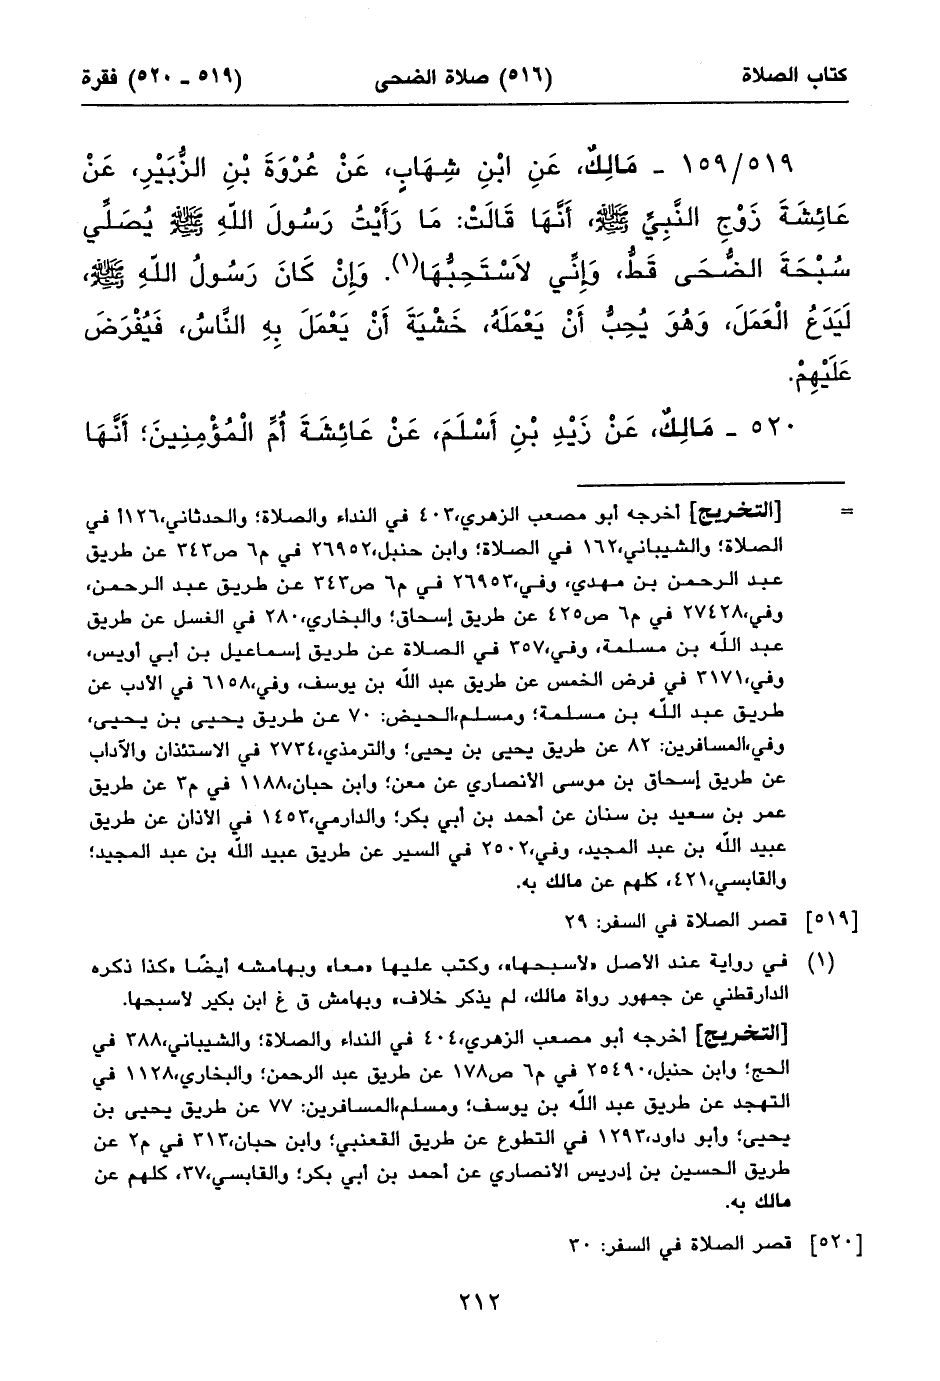 كتاب الصلاة (٥١٦) صلاة الضحى (٥١٩ ـ ٥٢٠) فقرة
١٥٩/٥١٩ ـ مَالِكٌ، عَنِ ابْنِ شِهَابٍ، عَنْ عُرْوَةَ بْنِ الزُّبَيْرِ، عَنْ
عَائِشَةَ زَوْجِ النَّبِيِّ ﷺ، أَنَّهَا قَالَتْ: مَا رَأَيْتُ رَسُولَ اللّٰهِ ﷺ يُصَلِّي
سُبْحَةَ الضُّحَى قَطُّ، وَإِنِّي لاَسْتَحِبُّهَا(١). وَإِنْ كَانَ رَسُولُ اللّٰهِ ﷺ،
لَيَدَعُ الْعَمَلَ، وَهُوَ يُحِبُّ أَنْ يَعْمَلَهُ، خَشْيَةَ أَنْ يَعْمَلَ بِهِ النَّاسُ، فَيُفْرَضَ
عَلَيْهِمْ.
٥٢٠ ـ مَالِكٌ، عَنْ زَيْدِ بْنِ أَسْلَمَ، عَنْ عَائِشَةَ أُمِّ الْمُؤْمِنِينَ؛ أَنَّهَا
= [التخريج] أخرجه أبو مصعب الزهري،٤٠٣ في النداء والصلاة؛ والحدثاني،١٢٦أ في
الصلاة؛ والشيباني،١٦٢ في الصلاة؛ وابن حنبل،٢٦٩٥٢ في م٦ ص٣٤٣ عن طريق
عبد الرحمن بن مهدي، وفي،٢٦٩٥٣ في م٦ ص٣٤٣ عن طريق عبد الرحمن،
وفي،٢٧٤٢٨ في م٦ ص٤٢٥ عن طريق إسحاق؛ والبخاري،٢٨٠ في الغسل عن طريق
عبد اللّٰه بن مسلمة، وفي،٣٥٧ في الصلاة عن طريق إسماعيل بن أبي أويس،
وفي،٣١٧١ في فرض الخمس عن طريق عبد اللّٰه بن يوسف، وفي،٦١٥٨ في الأدب عن
طريق عبد اللّٰه بن مسلمة؛ ومسلم،الحيض: ٧٠ عن طريق يحيى بن يحيى،
وفي،المسافرين: ٨٢ عن طريق يحيى بن يحيى؛ والترمذي،٢٧٣٤ في الاستئذان والآداب
عن طريق إسحاق بن موسى الأنصاري عن معن؛ وابن حبان،١١٨٨ في م٣ عن طريق
عمر بن سعيد بن سنان عن أحمد بن أبي بكر؛ والدارمي،١٤٥٣ في الأذان عن طريق
عبيد اللّٰه بن عبد المجيد، وفي،٢٥٠٢ في السير عن طريق عبيد اللّٰه بن عبد المجيد؛
والقابسي،٤٢١، كلهم عن مالك به.
[٥١٩] قصر الصلاة في السفر: ٢٩
(١) في رواية عند الأصل «لأسبحها»، وكتب عليها «معا» وبهامشه أيضًا «كذا ذكره
الدارقطني عن جمهور رواة مالك، لم يذكر خلاف» وبهامش ق غ ابن بكير لأسبحها.
[التخريج] أخرجه أبو مصعب الزهري،٤٠٤ في النداء والصلاة؛ والشيباني،٣٨٨ في
الحج؛ وابن حنبل،٢٥٤٩٠ في م٦ ص١٧٨ عن طريق عبد الرحمن؛ والبخاري،١١٢٨ في
التهجد عن طريق عبد اللّٰه بن يوسف؛ ومسلم،المسافرين: ٧٧ عن طريق يحيى بن
يحيى؛ وأبو داود،١٢٩٣ في التطوع عن طريق القعنبي؛ وابن حبان،٣١٣ في م٢ عن
طريق الحسين بن إدريس الأنصاري عن أحمد بن أبي بكر؛ والقابسي،٣٧، كلهم عن
مالك به.
[٥٢٠] قصر الصلاة في السفر: ٣٠
٢١٢